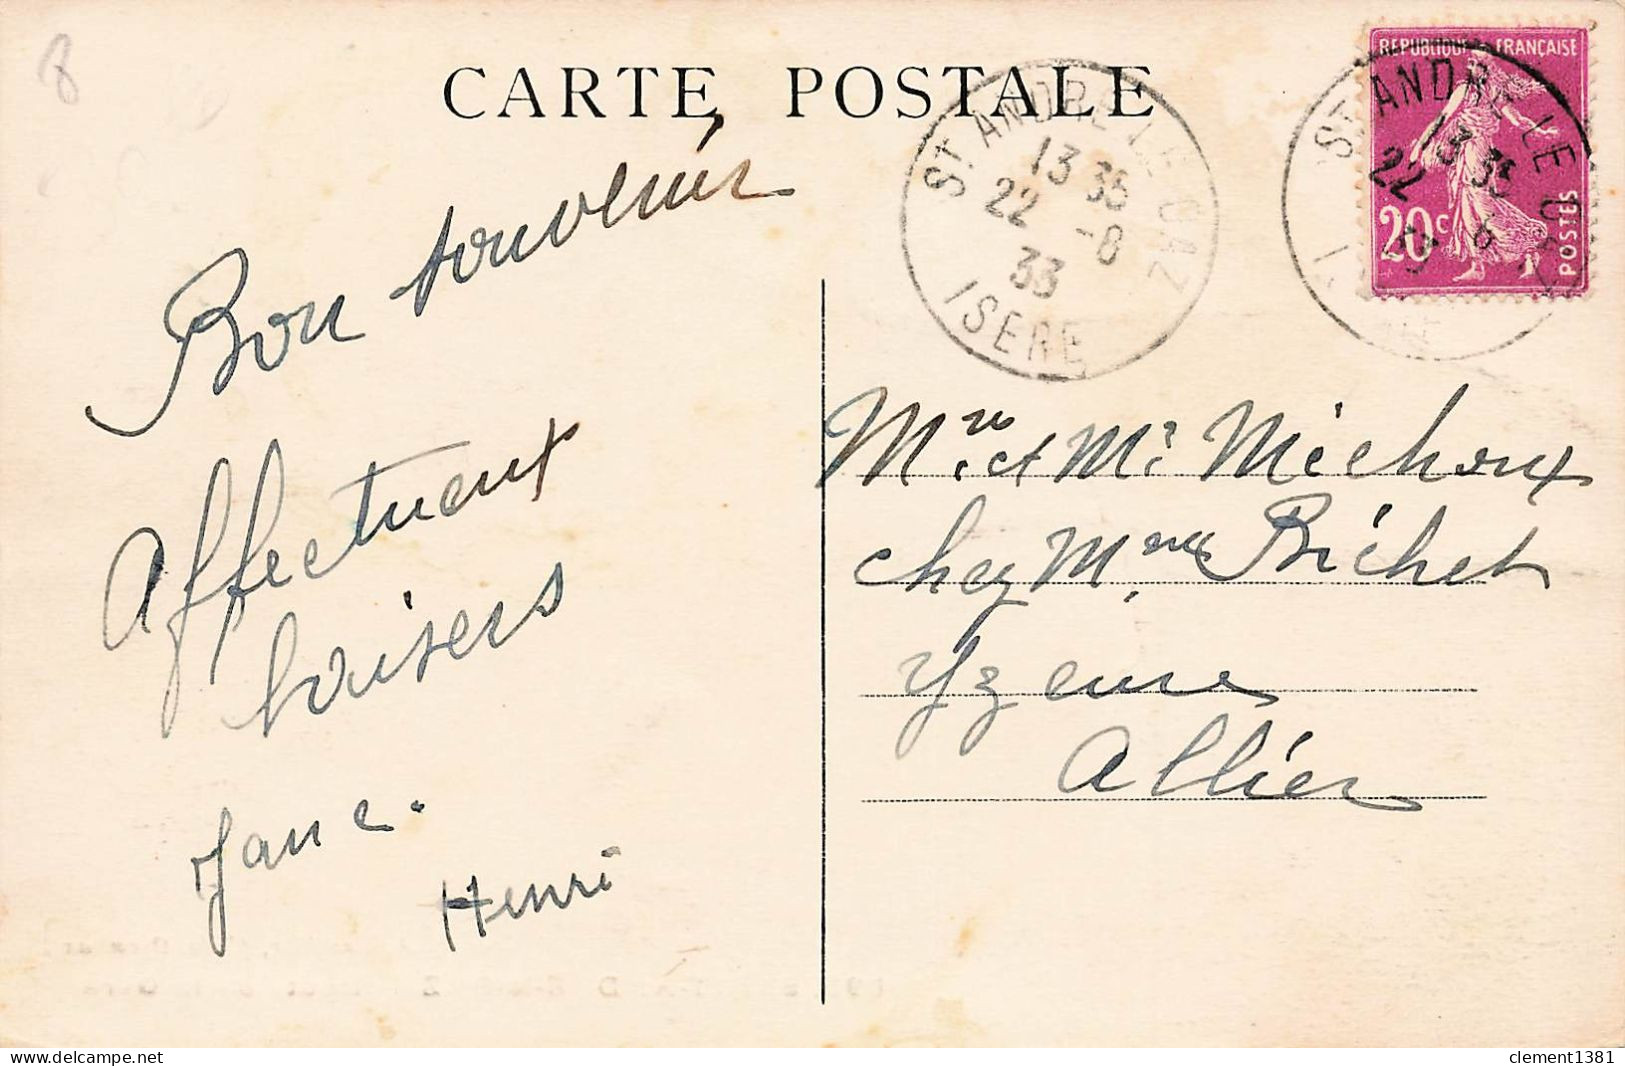 8
CARTE POSTALE
Bon souvenir
Affectueux
baisers
Jane.
Henri
ST ANDRE LE GAZ
13 35
22 -8
33
ISERE
REPUBLIQUE FRANÇAISE
20c
POSTES
ST ANDRE LE GAZ
13 35
22
Mre et Mr Michoux
chez Mme Bichet
Yzeure
Allier
delcampe.net
clement1381